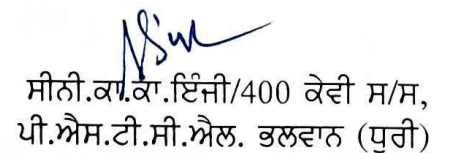 ਸੀਨੀ.ਕਾ.ਕਾ.ਇੰਜੀ/400 ਕੇਵੀ ਸ/ਸ,
ਪੀ.ਐਸ.ਟੀ.ਸੀ.ਐਲ. ਭਲਵਾਨ (ਧੁਰੀ)